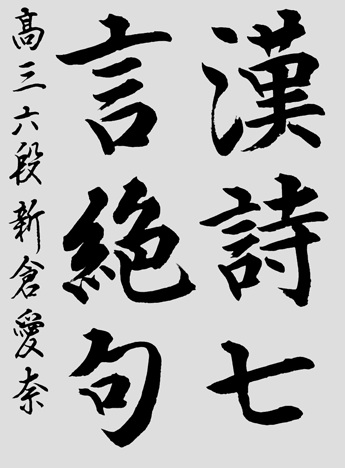 漢詩七
言絶句
高三六段新倉愛奈